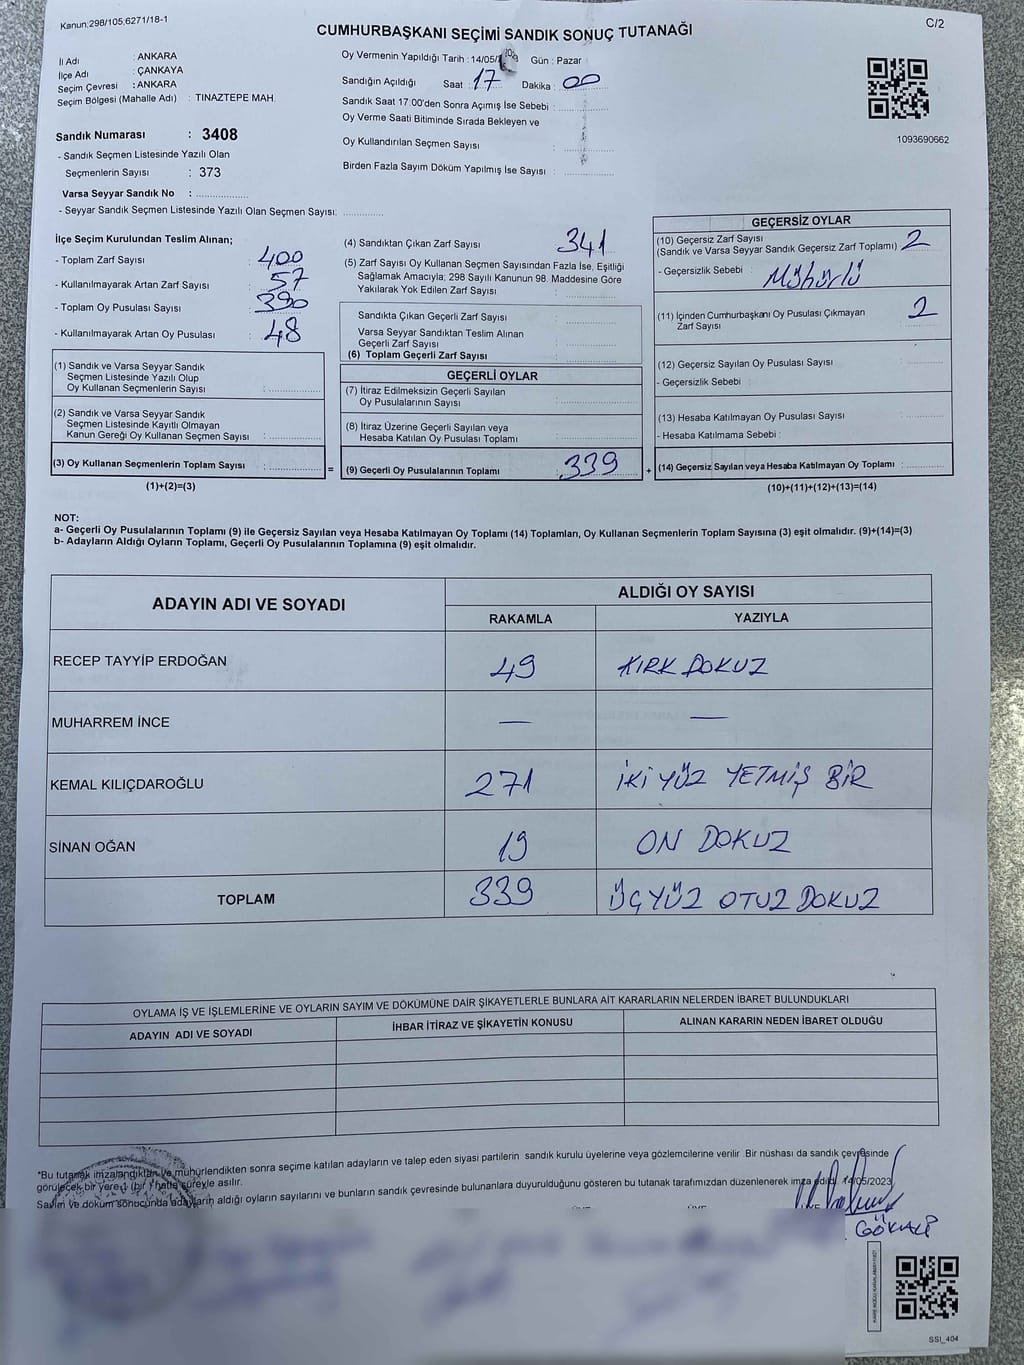 Kanun;298/105,6271/18-1
C/2
CUMHURBAŞKANI SEÇİMİ SANDIK SONUÇ TUTANAĞI
İl Adı : ANKARA
İlçe Adı : ÇANKAYA
Seçim Çevresi : ANKARA
Seçim Bölgesi (Mahalle Adı) : TINAZTEPE MAH.
Sandık Numarası : 3408
- Sandık Seçmen Listesinde Yazılı Olan
Seçmenlerin Sayısı : 373
Varsa Seyyar Sandık No :
- Seyyar Sandık Seçmen Listesinde Yazılı Olan Seçmen Sayısı:
Oy Vermenin Yapıldığı Tarih : 14/05/ Gün : Pazar
Sandığın Açıldığı Saat : 17 Dakika : 00
Sandık Saat 17:00'den Sonra Açımış İse Sebebi :
Oy Verme Saati Bitiminde Sırada Bekleyen ve
Oy Kullandırılan Seçmen Sayısı :
Birden Fazla Sayım Döküm Yapılmış İse Sayısı :
1093690662
İlçe Seçim Kurulundan Teslim Alınan;
- Toplam Zarf Sayısı : 400
- Kullanılmayarak Artan Zarf Sayısı : 57
- Toplam Oy Pusulası Sayısı : 390
- Kullanılmayarak Artan Oy Pusulası : 48
(1) Sandık ve Varsa Seyyar Sandık
Seçmen Listesinde Yazılı Olup
Oy Kullanan Seçmenlerin Sayısı :
(2) Sandık ve Varsa Seyyar Sandık
Seçmen Listesinde Kayıtlı Olmayan
Kanun Gereği Oy Kullanan Seçmen Sayısı :
(3) Oy Kullanan Seçmenlerin Toplam Sayısı :
(1)+(2)=(3)
(4) Sandıktan Çıkan Zarf Sayısı : 341
(5) Zarf Sayısı Oy Kullanan Seçmen Sayısından Fazla İse, Eşitliği
Sağlamak Amacıyla; 298 Sayılı Kanunun 98. Maddesine Göre
Yakılarak Yok Edilen Zarf Sayısı :
Sandıkta Çıkan Geçerli Zarf Sayısı :
Varsa Seyyar Sandıktan Teslim Alınan
Geçerli Zarf Sayısı :
(6) Toplam Geçerli Zarf Sayısı :
GEÇERLİ OYLAR
(7) İtiraz Edilmeksizin Geçerli Sayılan
Oy Pusulalarının Sayısı :
(8) İtiraz Üzerine Geçerli Sayılan veya
Hesaba Katılan Oy Pusulası Toplamı :
= (9) Geçerli Oy Pusulalarının Toplamı : 339 +
GEÇERSİZ OYLAR
(10) Geçersiz Zarf Sayısı : 2
(Sandık ve Varsa Seyyar Sandık Geçersiz Zarf Toplamı)
- Geçersizlik Sebebi : Mühürlü
(11) İçinden Cumhurbaşkanı Oy Pusulası Çıkmayan : 2
Zarf Sayısı
(12) Geçersiz Sayılan Oy Pusulası Sayısı :
- Geçersizlik Sebebi :
(13) Hesaba Katılmayan Oy Pusulası Sayısı :
- Hesaba Katılmama Sebebi :
(14) Geçersiz Sayılan veya Hesaba Katılmayan Oy Toplamı :
(10)+(11)+(12)+(13)=(14)
NOT:
a- Geçerli Oy Pusulalarının Toplamı (9) ile Geçersiz Sayılan veya Hesaba Katılmayan Oy Toplamı (14) Toplamları, Oy Kullanan Seçmenlerin Toplam Sayısına (3) eşit olmalıdır. (9)+(14)=(3)
b- Adayların Aldığı Oyların Toplamı, Geçerli Oy Pusulalarının Toplamına (9) eşit olmalıdır.
ADAYIN ADI VE SOYADI
ALDIĞI OY SAYISI
RAKAMLA YAZIYLA
RECEP TAYYİP ERDOĞAN 49 KIRK DOKUZ
MUHARREM İNCE — —
KEMAL KILIÇDAROĞLU 271 İKİ YÜZ YETMİŞ BİR
SİNAN OĞAN 19 ON DOKUZ
TOPLAM 339 ÜÇYÜZ OTUZ DOKUZ
OYLAMA İŞ VE İŞLEMLERİNE VE OYLARIN SAYIM VE DÖKÜMÜNE DAİR ŞİKAYETLERLE BUNLARA AİT KARARLARIN NELERDEN İBARET BULUNDUKLARI
ADAYIN ADI VE SOYADI İHBAR İTİRAZ VE ŞİKAYETİN KONUSU ALINAN KARARIN NEDEN İBARET OLDUĞU
*Bu tutanak imzalandıktan ve mühürlendikten sonra seçime katılan adayların ve talep eden siyasi partilerin sandık kurulu üyelerine veya gözlemcilerine verilir Bir nüshası da sandık çevresinde
görülecek bir yere 1 (bir) hafta süreyle asılır.
Sayım ve döküm sonucunda adayların aldığı oyların sayılarını ve bunların sandık çevresinde bulunanlara duyurulduğunu gösteren bu tutanak tarafımızdan düzenlenerek imza edildi. 14/05/2023
GÖKALP
SSI_404